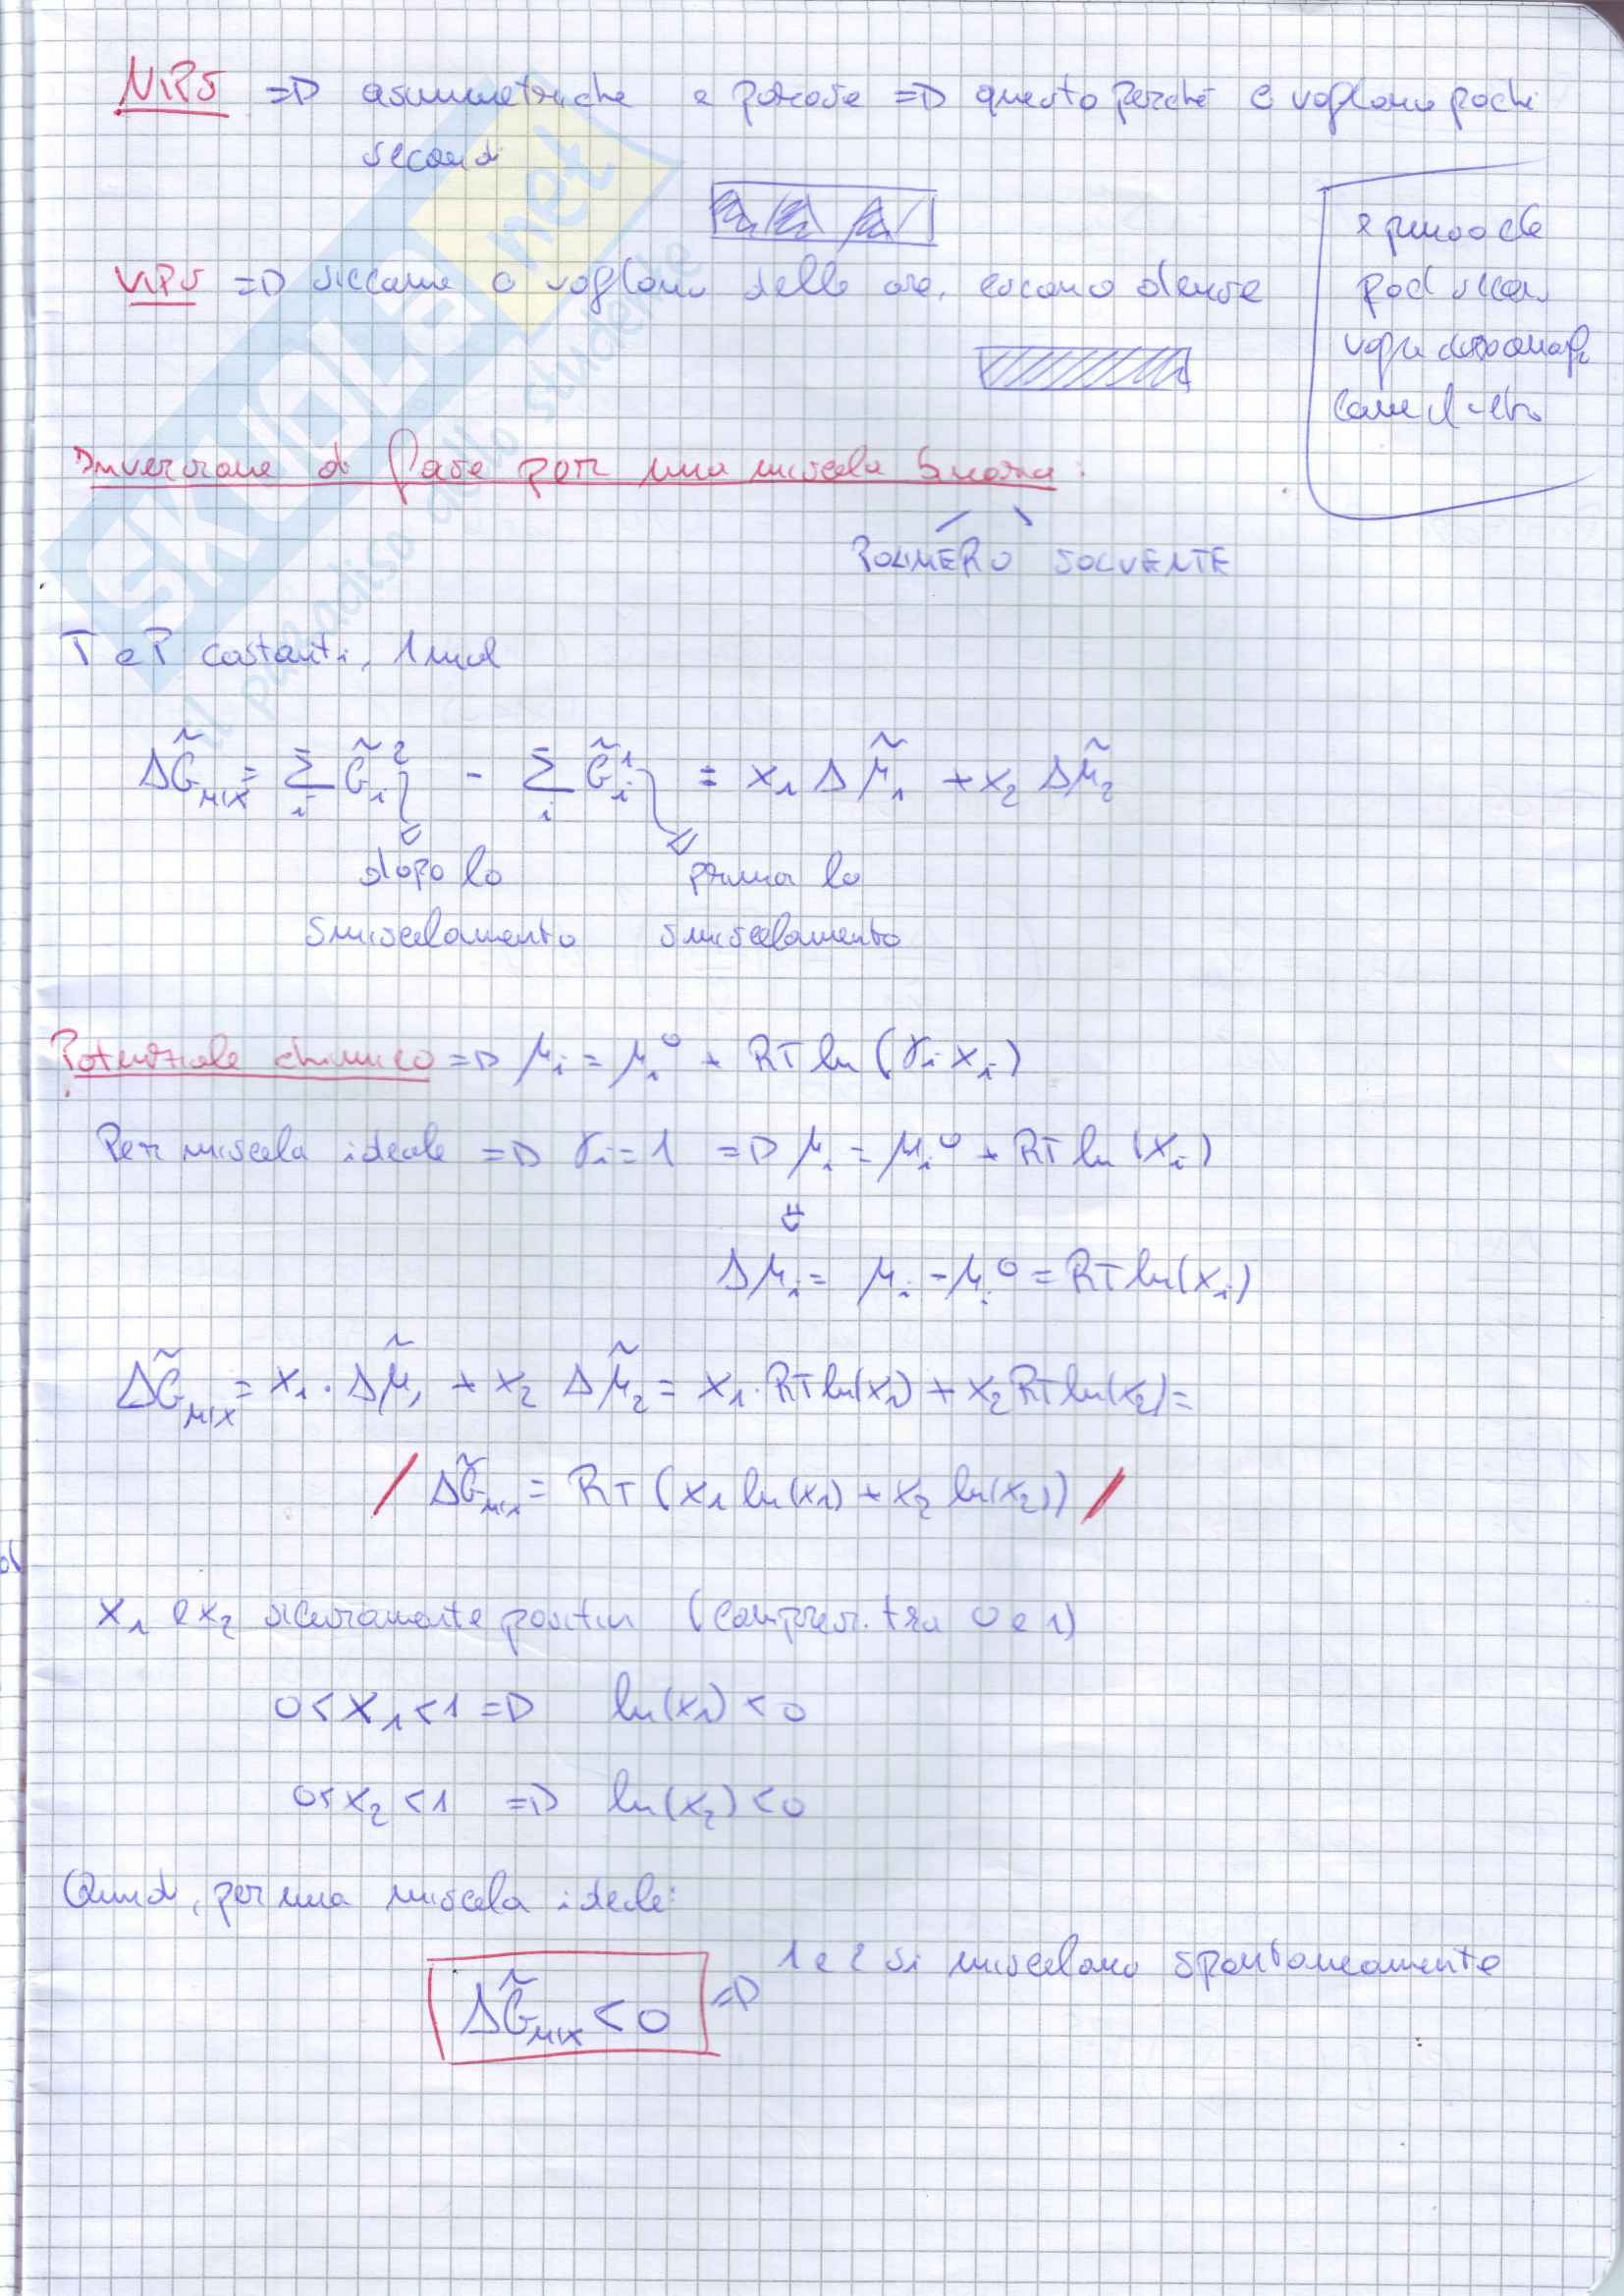 NIPS => asimmetriche e porose => questo perché ci vogliono pochi
secondi
VIPS => siccome ci vogliono delle ore, escono dense
Inversione di fase per una miscela binaria:
POLIMERO SOLVENTE
T e P costanti, 1 mol
ΔG̃_MIX = Σ_i G̃_i^2 - Σ_i G̃_i^1 = x₁ Δμ̃₁ + x₂ Δμ̃₂
dopo lo prima lo
smiscelamento smiscelamento
Potenziale chimico => μ_i = μ_i^0 + RT ln (γ_i x_i)
Per miscela ideale => γ_i = 1 => μ_i = μ_i^0 + RT ln (x_i)
Δμ_i = μ_i - μ_i^0 = RT ln(x_i)
ΔG̃_MIX = x₁ · Δμ̃₁ + x₂ Δμ̃₂ = x₁ · RT ln(x₁) + x₂ RT ln(x₂) =
/ ΔG̃_MIX = RT (x₁ ln(x₁) + x₂ ln(x₂)) /
x₁ e x₂ sicuramente positivi (compresi tra 0 e 1)
0 < x₁ < 1 => ln(x₁) < 0
0 < x₂ < 1 => ln(x₂) < 0
Quindi, per una miscela ideale:
ΔG̃_MIX < 0 => 1 e 2 si miscelano spontaneamente
SKUOLA.net
il paradiso dello studente